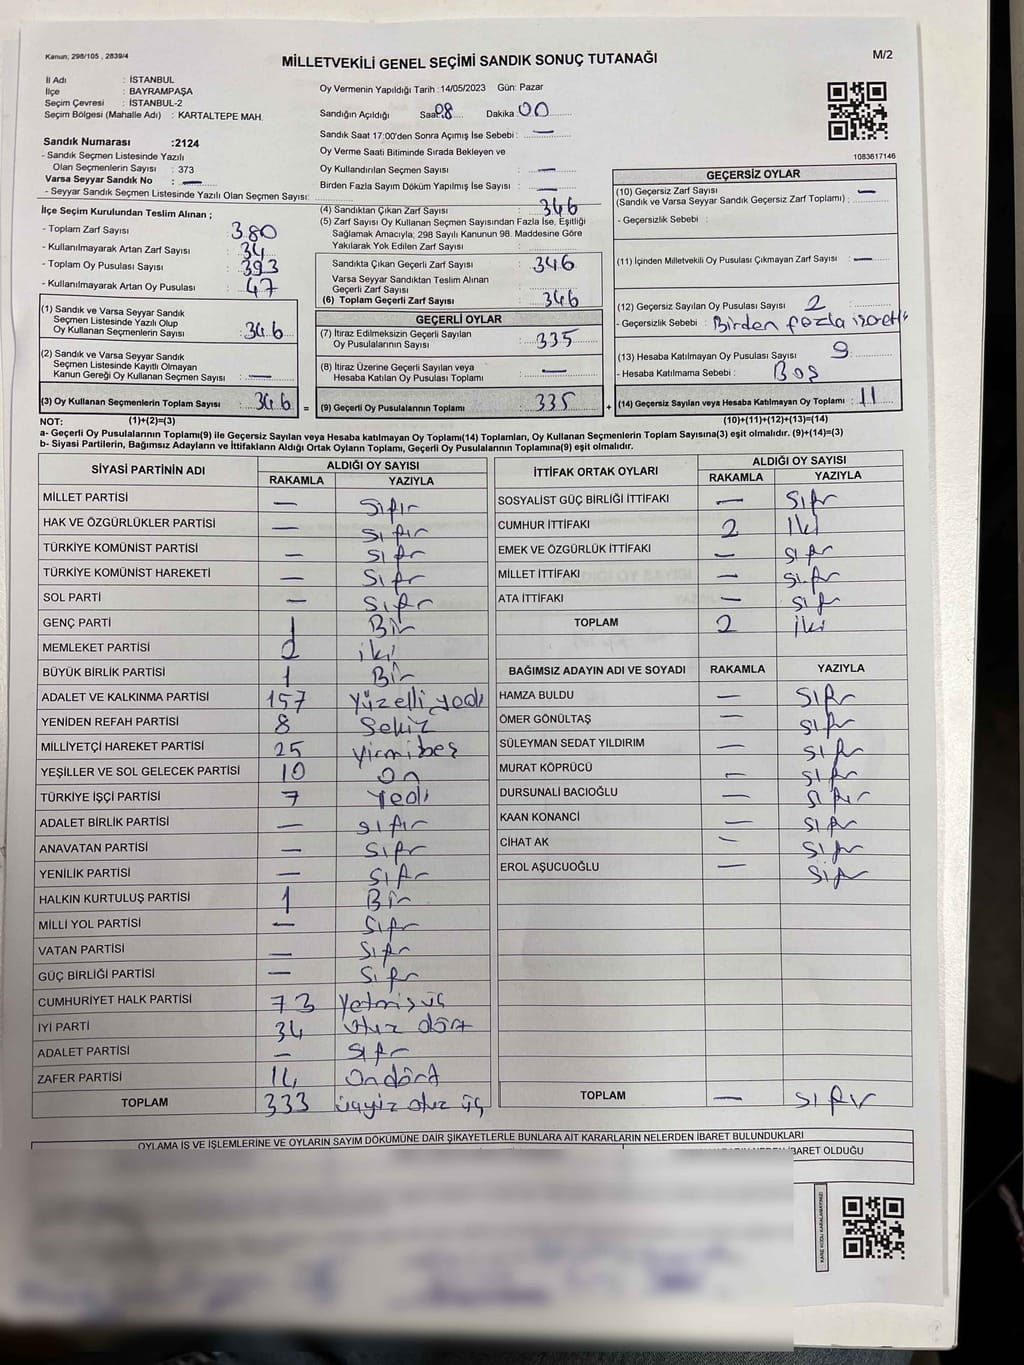 Kanun, 298/105 , 2839/4
MİLLETVEKİLİ GENEL SEÇİMİ SANDIK SONUÇ TUTANAĞI
M/2
İl Adı : İSTANBUL
İlçe : BAYRAMPAŞA
Seçim Çevresi : İSTANBUL-2
Seçim Bölgesi (Mahalle Adı) : KARTALTEPE MAH.
Oy Vermenin Yapıldığı Tarih :14/05/2023 Gün: Pazar
Sandığın Açıldığı Saat 08 Dakika 00
Sandık Saat 17:00'den Sonra Açımış İse Sebebi : —
Oy Verme Saati Bitiminde Sırada Bekleyen ve
Oy Kullandırılan Seçmen Sayısı : —
Birden Fazla Sayım Döküm Yapılmış İse Sayısı : —
1083617146
Sandık Numarası :2124
- Sandık Seçmen Listesinde Yazılı
Olan Seçmenlerin Sayısı : 373
Varsa Seyyar Sandık No : —
- Seyyar Sandık Seçmen Listesinde Yazılı Olan Seçmen Sayısı:
İlçe Seçim Kurulundan Teslim Alınan ;
- Toplam Zarf Sayısı : 380
- Kullanılmayarak Artan Zarf Sayısı : 34
- Toplam Oy Pusulası Sayısı : 393
- Kullanılmayarak Artan Oy Pusulası : 47
(1) Sandık ve Varsa Seyyar Sandık
Seçmen Listesinde Yazılı Olup
Oy Kullanan Seçmenlerin Sayısı : 346
(2) Sandık ve Varsa Seyyar Sandık
Seçmen Listesinde Kayıtlı Olmayan
Kanun Gereği Oy Kullanan Seçmen Sayısı : —
(3) Oy Kullanan Seçmenlerin Toplam Sayısı : 346 =
(4) Sandıktan Çıkan Zarf Sayısı : 346
(5) Zarf Sayısı Oy Kullanan Seçmen Sayısından Fazla İse, Eşitliği
Sağlamak Amacıyla; 298 Sayılı Kanunun 98. Maddesine Göre
Yakılarak Yok Edilen Zarf Sayısı :
Sandıkta Çıkan Geçerli Zarf Sayısı : 346
Varsa Seyyar Sandıktan Teslim Alınan
Geçerli Zarf Sayısı :
(6) Toplam Geçerli Zarf Sayısı : 346
GEÇERLİ OYLAR
(7) İtiraz Edilmeksizin Geçerli Sayılan
Oy Pusulalarının Sayısı : 335
(8) İtiraz Üzerine Geçerli Sayılan veya
Hesaba Katılan Oy Pusulası Toplamı : —
(9) Geçerli Oy Pusulalarının Toplamı : 335 +
GEÇERSİZ OYLAR
(10) Geçersiz Zarf Sayısı —
(Sandık ve Varsa Seyyar Sandık Geçersiz Zarf Toplamı) :
- Geçersizlik Sebebi :
(11) İçinden Milletvekili Oy Pusulası Çıkmayan Zarf Sayısı : —
(12) Geçersiz Sayılan Oy Pusulası Sayısı : 2
- Geçersizlik Sebebi : Birden fazla
(13) Hesaba Katılmayan Oy Pusulası Sayısı : 9
- Hesaba Katılmama Sebebi : Boş
(14) Geçersiz Sayılan veya Hesaba Katılmayan Oy Toplamı : 11
NOT: (1)+(2)=(3) (10)+(11)+(12)+(13)=(14)
a- Geçerli Oy Pusulalarının Toplamı(9) ile Geçersiz Sayılan veya Hesaba katılmayan Oy Toplamı(14) Toplamları, Oy Kullanan Seçmenlerin Toplam Sayısına(3) eşit olmalıdır. (9)+(14)=(3)
b- Siyasi Partilerin, Bağımsız Adayların ve İttifakların Aldığı Ortak Oyların Toplamı, Geçerli Oy Pusulalarının Toplamına(9) eşit olmalıdır.
SİYASİ PARTİNİN ADI ALDIĞI OY SAYISI
RAKAMLA YAZIYLA
MİLLET PARTİSİ — Sıfır
HAK VE ÖZGÜRLÜKLER PARTİSİ — sıfır
TÜRKİYE KOMÜNİST PARTİSİ — sıfır
TÜRKİYE KOMÜNİST HAREKETİ — Sıfır
SOL PARTİ — Sıfır
GENÇ PARTİ 1 Bir
MEMLEKET PARTİSİ 2 iki
BÜYÜK BİRLİK PARTİSİ 1 Bir
ADALET VE KALKINMA PARTİSİ 157 Yüzelli yedi
YENİDEN REFAH PARTİSİ 8 Sekiz
MİLLİYETÇİ HAREKET PARTİSİ 25 Yirmibeş
YEŞİLLER VE SOL GELECEK PARTİSİ 10 On
TÜRKİYE İŞÇİ PARTİSİ 7 Yedi
ADALET BİRLİK PARTİSİ — sıfır
ANAVATAN PARTİSİ — Sıfır
YENİLİK PARTİSİ — Sıfır
HALKIN KURTULUŞ PARTİSİ 1 Bir
MİLLİ YOL PARTİSİ — Sıfır
VATAN PARTİSİ — Sıfır
GÜÇ BİRLİĞİ PARTİSİ — Sıfır
CUMHURİYET HALK PARTİSİ 73 Yetmiş üç
İYİ PARTİ 34 otuz dört
ADALET PARTİSİ — Sıfır
ZAFER PARTİSİ 14 Ondört
TOPLAM 333 üçyüz otuz üç
İTTİFAK ORTAK OYLARI ALDIĞI OY SAYISI
RAKAMLA YAZIYLA
SOSYALİST GÜÇ BİRLİĞİ İTTİFAKI — Sıfır
CUMHUR İTTİFAKI 2 İki
EMEK VE ÖZGÜRLÜK İTTİFAKI — sıfır
MİLLET İTTİFAKI — sıfır
ATA İTTİFAKI — sıfır
TOPLAM 2 iki
BAĞIMSIZ ADAYIN ADI VE SOYADI RAKAMLA YAZIYLA
HAMZA BULDU — Sıfır
ÖMER GÖNÜLTAŞ — sıfır
SÜLEYMAN SEDAT YILDIRIM — sıfır
MURAT KÖPRÜCÜ — sıfır
DURSUNALİ BACIOĞLU — sıfır
KAAN KONANCİ — sıfır
CİHAT AK — sıfır
EROL AŞUCUOĞLU — Sıfır
TOPLAM — sıfır
OYLAMA İŞ VE İŞLEMLERİNE VE OYLARIN SAYIM DÖKÜMÜNE DAİR ŞİKAYETLERLE BUNLARA AİT KARARLARIN NELERDEN İBARET BULUNDUKLARI
İBARET OLDUĞU
KARE KODU KARALAMAYINIZ!